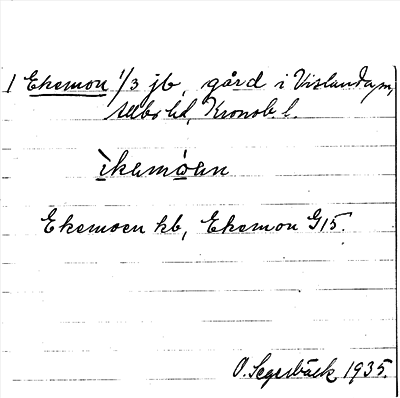 1 Ekemon 1/3 jb, gård i Vislanda sn,
Allbo hd, Kronob. l.
ìkamóen
Ekemoen kb, Ekemon G15.
O. Segerbäck 1935.